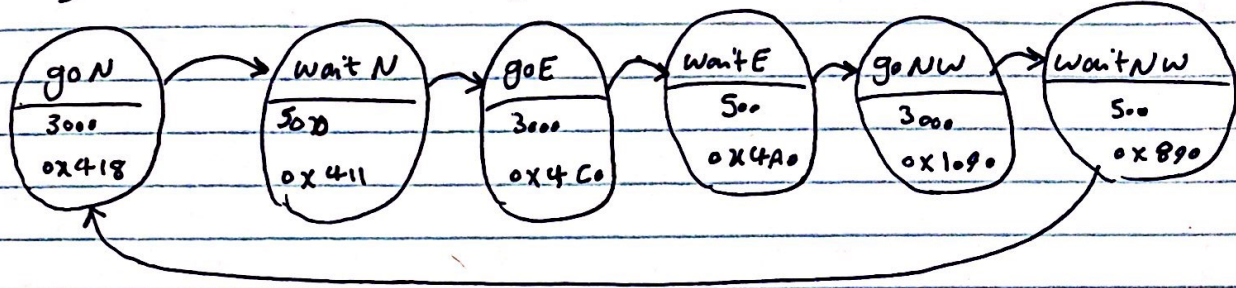 goN
3000
0x418
waitN
500
0x411
goE
3000
0x4C0
waitE
500
0x4A0
goNW
3000
0x1090
waitNW
500
0x890